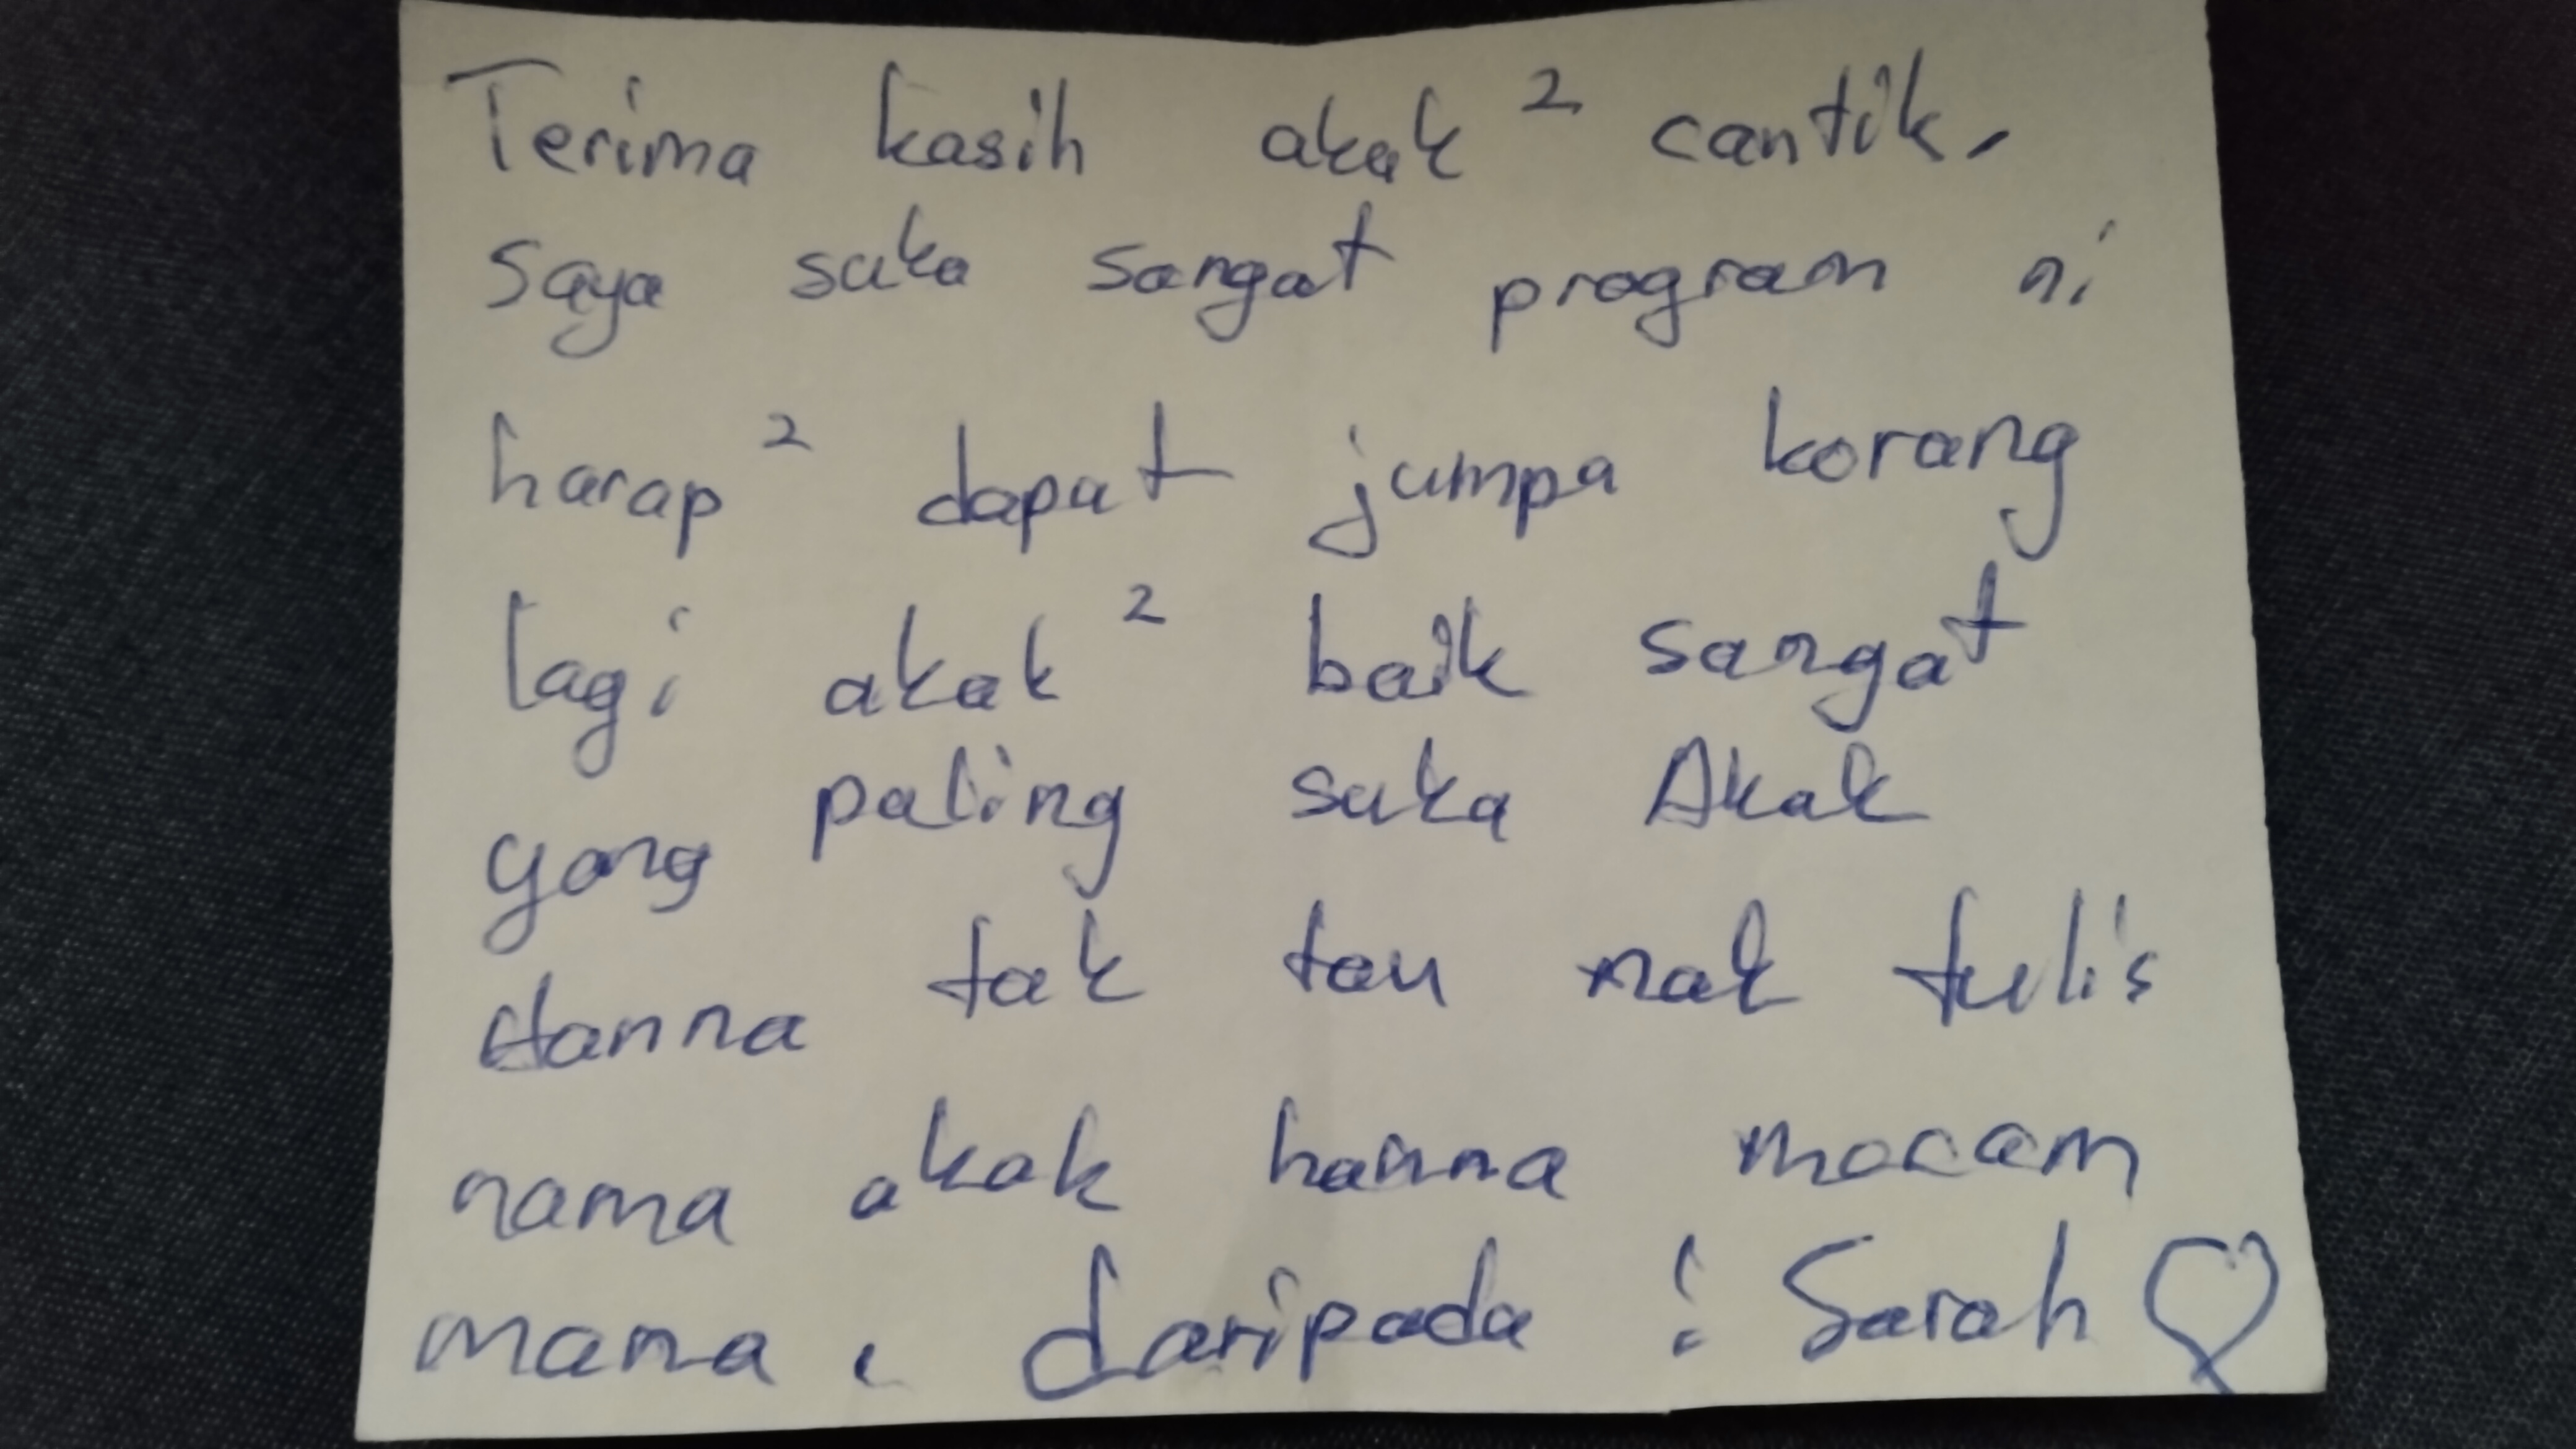 Terima kasih akak² cantik.
Saya suka sangat program ni
harap² dapat jumpa korang
lagi akak² baik sangat
yang paling suka Akak
Hanna tak tau nak tulis
nama akak hanna macam
mana. daripada : Sarah ♡